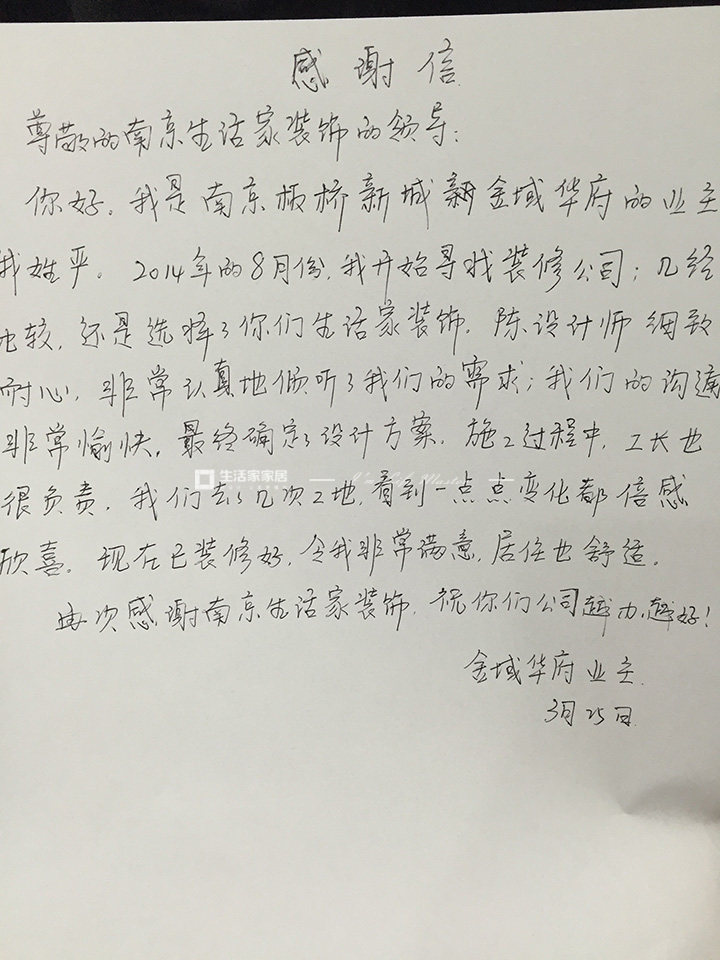 感谢信
尊敬的南京生活家装饰的领导：
你好。我是南京板桥新城新金域华府的业主
我姓严。2014年的8月份，我开始寻找装修公司；几经
比较，还是选择了你们生活家装饰。陈设计师细致
耐心，非常认真地倾听了我们的需求；我们的沟通
非常愉快。最终确定了设计方案。施工过程中，工长也
生活家家居
很负责，我们去了几次工地，看到一点点变化都倍感
欣喜。现在已装修好，令我非常满意，居住也舒适。
再次感谢南京生活家装饰，祝你们公司越办越好！
金域华府业主
3月25日